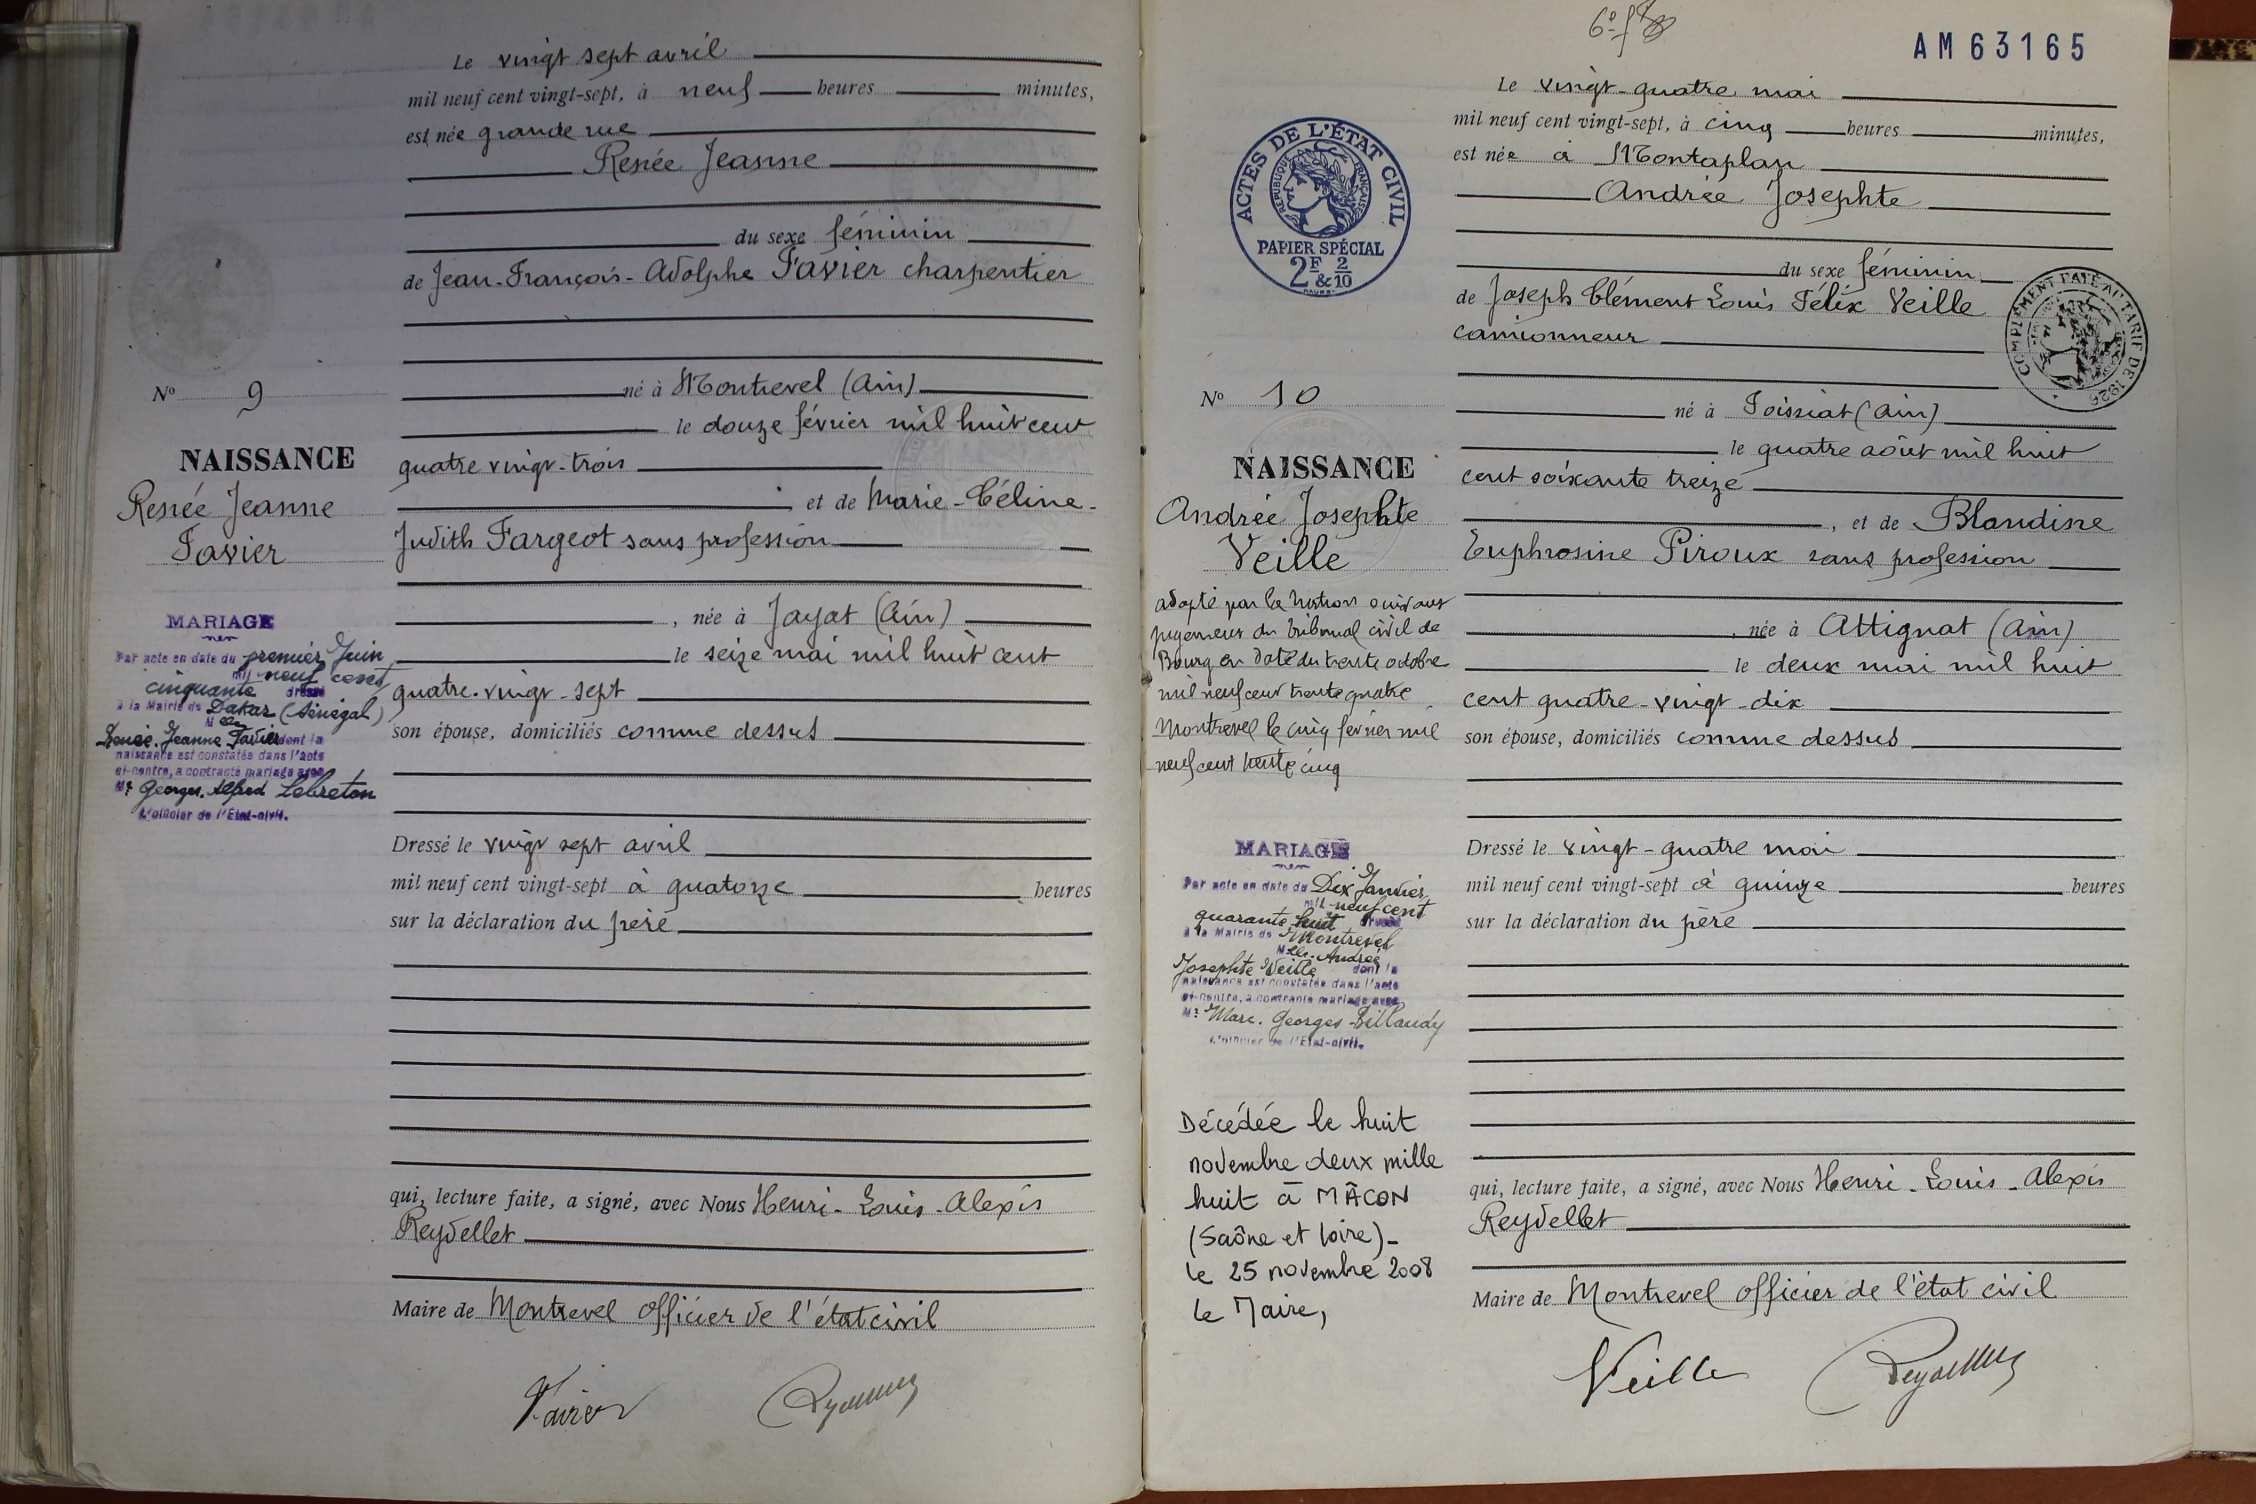 Le vingt sept avril
mil neuf cent vingt-sept, à neuf heures minutes,
est née grande rue
Renée Jeanne
du sexe féminin
de Jean-François-Adolphe Favier charpentier
né à Montrevel (Ain)
le douze février mil huit cent
quatre vingt-trois
, et de Marie-Céline-
Judith Fargeot sans profession
, née à Jayat (Ain)
le seize mai mil huit cent
quatre-vingt-sept
son épouse, domiciliés comme dessus
Dressé le vingt sept avril
mil neuf cent vingt-sept à quatorze heures
sur la déclaration du père
qui, lecture faite, a signé, avec Nous Henri-Louis-Alexis
Reydellet
Maire de Montrevel officier de l'état civil
Favier
Nº 9
NAISSANCE
Renée Jeanne
Favier
MARIAGE
Par acte en date du premier Juin
mil neuf cent
cinquante dressé
à la Mairie de Dakar (Sénégal)
Melle
Renée Jeanne Favier dont la
naissance est constatée dans l'acte
ci-contre, a contracté mariage avec
Mr Georges Alfred Lebreton
L'officier de l'Etat-civil.
AM 63165
ACTES DE L'ÉTAT CIVIL
REPUBLIQUE FRANÇAISE
PAPIER SPÉCIAL
2F & 2/10
Le vingt-quatre mai
mil neuf cent vingt-sept, à cinq heures minutes,
est née à Montaplan
Andrée Josephte
du sexe féminin
de Joseph Clément Louis Félix Veille
camionneur
COMPLÉMENT PAYÉ AU TARIF DE 1926
né à Foissiat (Ain)
le quatre août mil huit
cent soixante treize
, et de Blandine
Euphrosine Piroux sans profession
, née à Attignat (Ain)
le deux mai mil huit
cent quatre-vingt-dix
son épouse, domiciliés comme dessus
Dressé le vingt-quatre mai
mil neuf cent vingt-sept à quinze heures
sur la déclaration du père
qui, lecture faite, a signé, avec Nous Henri-Louis-Alexis
Reydellet
Maire de Montrevel officier de l'état civil
Veille
Nº 10
NAISSANCE
Andrée Josephte
Veille
adopté par la Nation suivant
jugement du Tribunal civil de
Bourg en date du trente octobre
mil neuf cent trente quatre
Montrevel le cinq février mil
neuf cent trente cinq
MARIAGE
Par acte en date du Dix Janvier
mil neuf cent
quarante huit dressé
à la Mairie de Montrevel
Melle Andrée
Josephte Veille dont la
naissance est constatée dans l'acte
ci-contre, a contracté mariage avec
Mr Marc Georges
L'officier de l'Etat-civil.
Décédée le huit
novembre deux mille
huit à MÂCON
(Saône et Loire)-
le 25 novembre 2008
Le Maire,